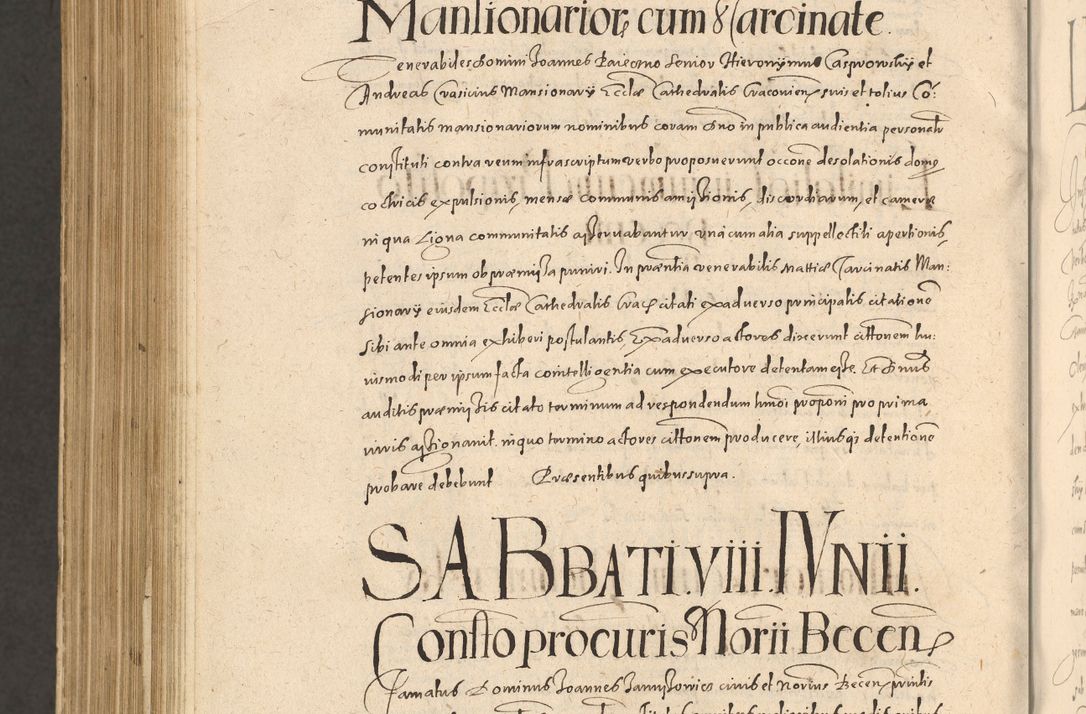 Mansionarior; cum & Carcinate.
Venerabiles Domini Joannes Raieczno Senior Hieronymus Casprowskÿ et
Andreas Crasicius Mansionarÿ Ecclæ Cathedralis Cracovien, suis et totius Cō:
munitatis mansionariorum nominibus coram Dno in publica audientia personalr
constituti contra reum infrascriptum verbo proposuerunt occone desolationis domo
coctricis expulsionis, mensæ communis amissionis, discordiarum, et cameræ
in qua Ligna communitatis asservabantur, una cum alia suppellectili apertionis,
petentes ipsum ob præmissa puniri. In præntia venerabilis Matthiæ Carcinatis Man:
sionarÿ eiusdem Ecclæ Cathedralis Crac, citati ex adverso principalis citationē
sibi ante omnia exhiberi postulantis, Ex adverso actores dixerunt cittonem hu:
iusmodi per ipsum facta cointelligentia cum executore detentam esse. Et Dnus
auditis præmissis citato terminum ad respondendum hmoi proponi pro prima
iuris assignavit. in quo termino actores cittonem producere, illiusq; detentionē
probare debebunt Præsentibus quibus supra.
SABBATI. VIII. IVNII.
Constto procuris Norii Becen,
Famatus Dominus Joannes Jannissonicz civis et Norius Becen, prńtis